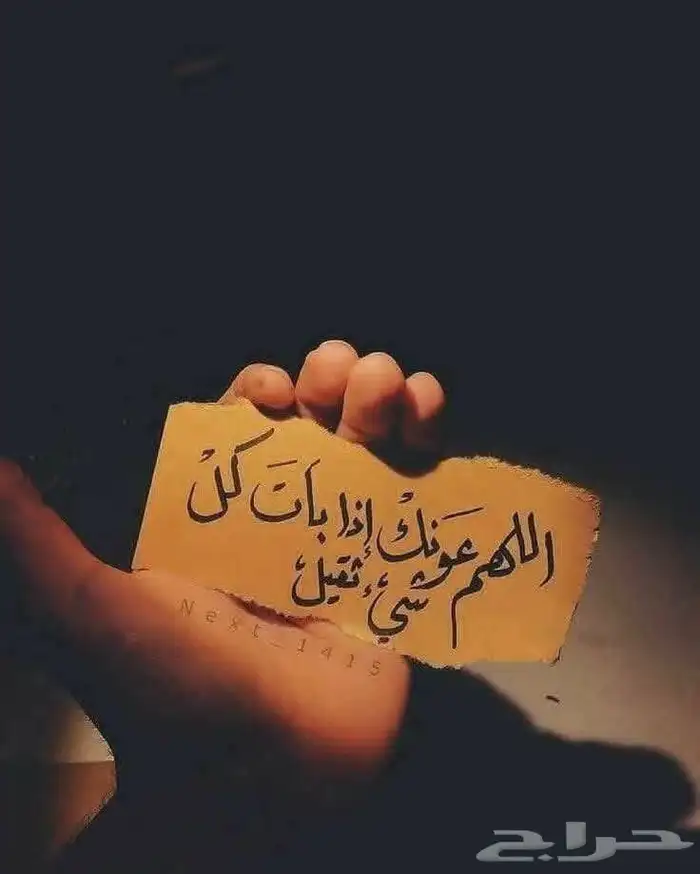 اللهم عَونكْ إذا باتَ كلْ
شيءٍ ثقيل
Next_1415
حراج